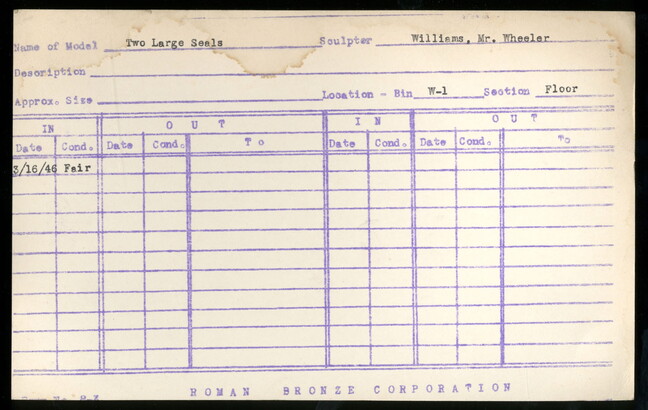 Name of Model Two Large Seals Sculptor Williams, Mr. Wheeler
Description
Approx. Size Location - Bin W-1 Section Floor
IN OUT IN OUT
Date Cond. Date Cond. To Date Cond. Date Cond. To
3/16/46 Fair
ROMAN BRONZE CORPORATION